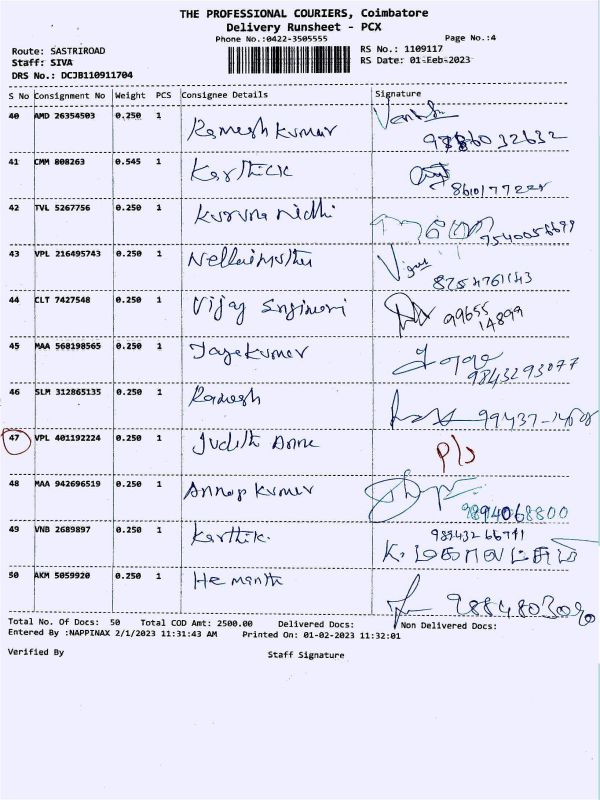 THE PROFESSIONAL COURIERS, Coimbatore
Delivery Runsheet - PCX
Phone No.:0422-3505555
Page No.:4
Route: SASTRIROAD
RS No.: 1109117
Staff: SIVA
RS Date: 01-Feb-2023
DRS No.: DCJB110911704
S No Consignment No Weight PCS Consignee Details Signature
40 AMD 26354503 0.250 1 Rameshkumar
41 CMM 808263 0.545 1 Karthick
42 TVL 5267756 0.250 1 Karuna nidhi
43 VPL 216495743 0.250 1 Nellaimuthu Vignesh
8254761143
44 CLT 7427548 0.250 1 Vijay 99655
14899
45 MAA 568198565 0.250 1 Jayakumar
9843293077
46 SLM 312865135 0.250 1 Ramesh
47 VPL 401192224 0.250 1 Judith Anne P/s
48 MAA 942696519 0.250 1 Annop kumar
9894068800
49 VNB 2689897 0.250 1 Karthik.
50 AKM 5059920 0.250 1 Hemanth
Total No. Of Docs: 50 Total COD Amt: 2500.00 Delivered Docs: Non Delivered Docs:
Entered By :NAPPINAX 2/1/2023 11:31:43 AM Printed On: 01-02-2023 11:32:01
Verified By Staff Signature